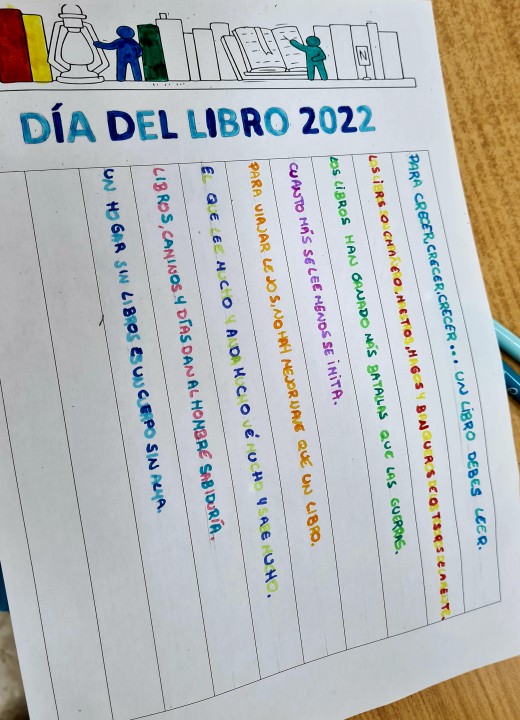 N
DÍA DEL LIBRO 2022
PARA CRECER, CRECER, CRECER... UN LIBRO DEBES LEER.
MAGOS Y DE LA MENTE.
LOS LIBROS HAN GANADO MÁS BATALLAS QUE LAS GUERRAS.
CUANTO MÁS SE LEE MENOS SE IMITA.
PARA VIAJAR LEJOS, NO HAY MEJOR NAVE QUE UN LIBRO.
EL QUE LEE MUCHO Y ANDA MUCHO VÉ MUCHO Y SABE MUCHO.
LIBROS, CAMINOS Y DÍAS DAN AL HOMBRE SABIDURÍA.
UN HOGAR SIN LIBROS ES UN CUERPO SIN ALMA.